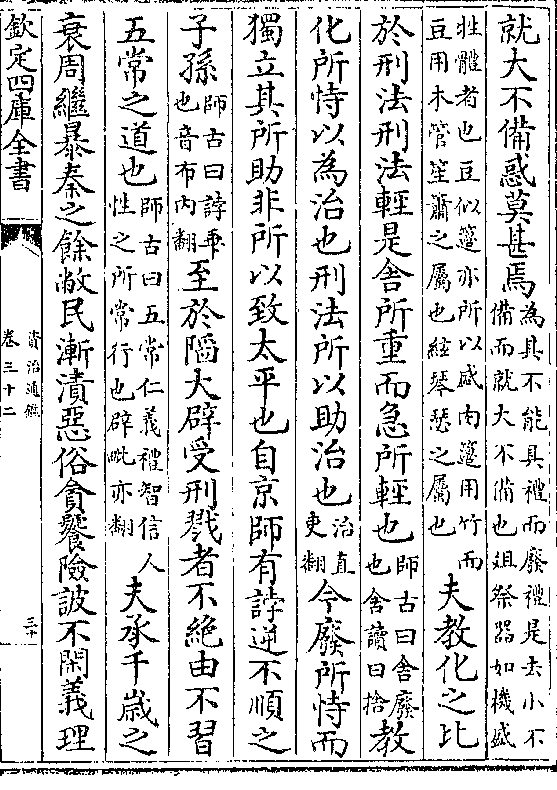 就大不備惑莫甚焉為其不能具禮而廢禮是去小不備而就大不備也俎祭器如機盛
牲體者也豆似籩亦所以盛肉籩用竹而豆用木管笙簫之屬也絃琴瑟之屬也夫教化之比
於刑法刑法輕是舍所重而急所輕也師古曰舍廢也舍讀曰捨教
化所恃以為治也刑法所以助治也治直吏翻今廢所恃而
獨立其所助非所以致太平也自京師有誖逆不順之
子孫師古曰誖乖也音布內翻至於陷大辟受刑戮者不絕由不習
五常之道也師古曰五常仁義禮智信人性之所常行也辟毗亦翻夫承千歲之
衰周繼暴秦之餘敝民漸漬惡俗貪饕險詖不閑義理
欽定四庫全書
資治通鑑
卷三十二
三十